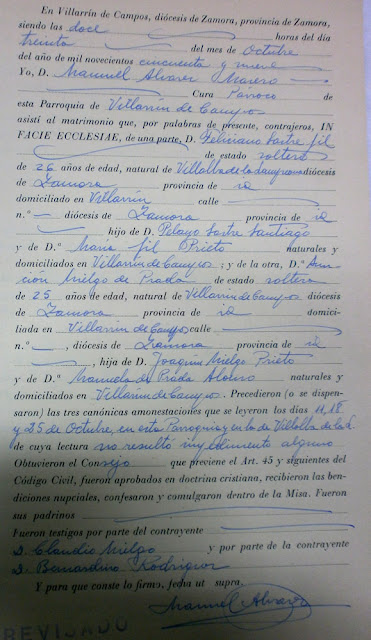 En Villarrín de Campos, diócesis de Zamora, provincia de Zamora,
siendo las doce horas del día
treinta del mes de Octubre
del año de mil novecientos cincuenta y nueve
Yo, D. Manuel Alvarez
Cura Párroco de
esta Parroquia de Villarrín de Campos
asistí al matrimonio que, por palabras de presente, contrajeron, IN
FACIE ECCLESIAE, de una parte, D. Feliciano Sastre Gil
de estado soltero
de 26 años de edad, natural de Villalba de la Lampreana diócesis
de Zamora provincia de id
domiciliado en Villarrín calle
n.º diócesis de Zamora provincia de id
hijo de D. Pelayo Sastre Santiago
y de D.ª María Gil Prieto naturales y
domiciliados en Villarrín de Campos; y de la otra, D.ª Asun-
ción Mielgo de Prada de estado soltera
de 25 años de edad, natural de Villarrín de Campos diócesis
de Zamora provincia de id domici-
liada en Villarrín de Campos calle
n.º , diócesis de Zamora provincia de id
, hija de D. Joaquín Mielgo Prieto
y de D.ª Manuela de Prada Alonso naturales y
domiciliados en Villarrín de Campos. Precedieron (o se dispen-
saron) las tres canónicas amonestaciones que se leyeron los días 11, 18
y 25 de Octubre en esta Parroquia y en la de Villalba de la L.
de cuya lectura no resultó impedimento alguno
Obtuvieron el Consejo que previene el Art. 45 y siguientes del
Código Civil, fueron aprobados en doctrina cristiana, recibieron las ben-
diciones nupciales, confesaron y comulgaron dentro de la Misa. Fueron
sus padrinos
Fueron testigos por parte del contrayente
D. Claudio Mielgo y por parte de la contrayente
D. Bernardino Rodríguez
Y para que conste lo firmo, fecha ut supra.
Manuel Alvarez
REVISADO